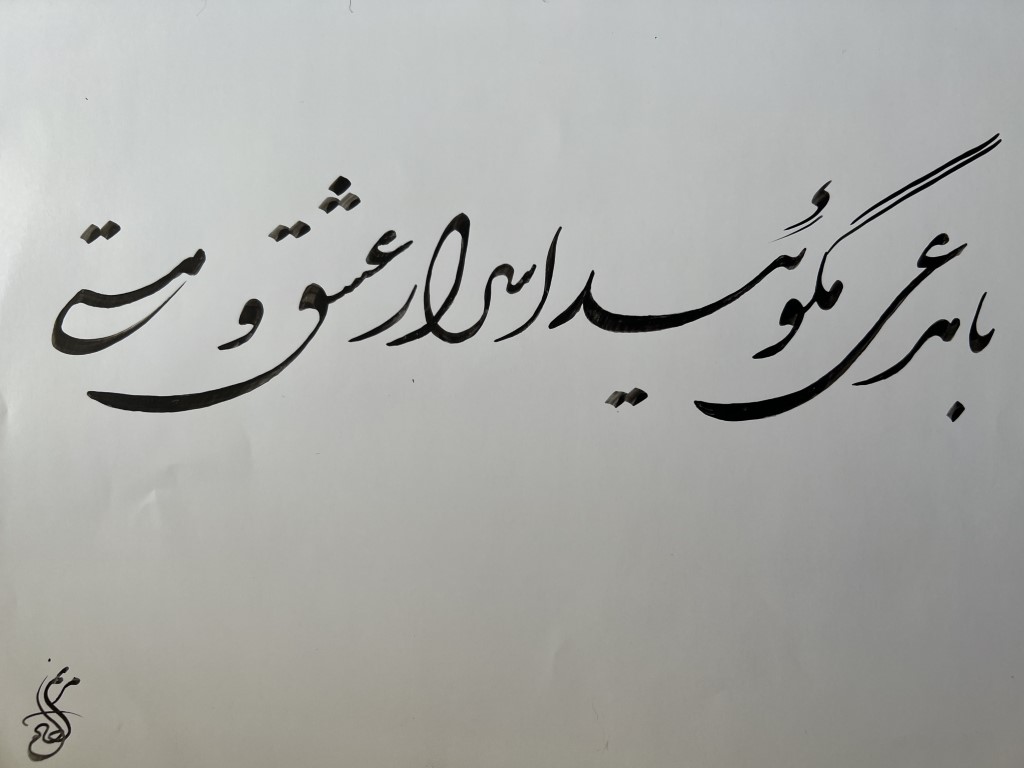 با مدعی مگوئید اسرار عشق و مستی